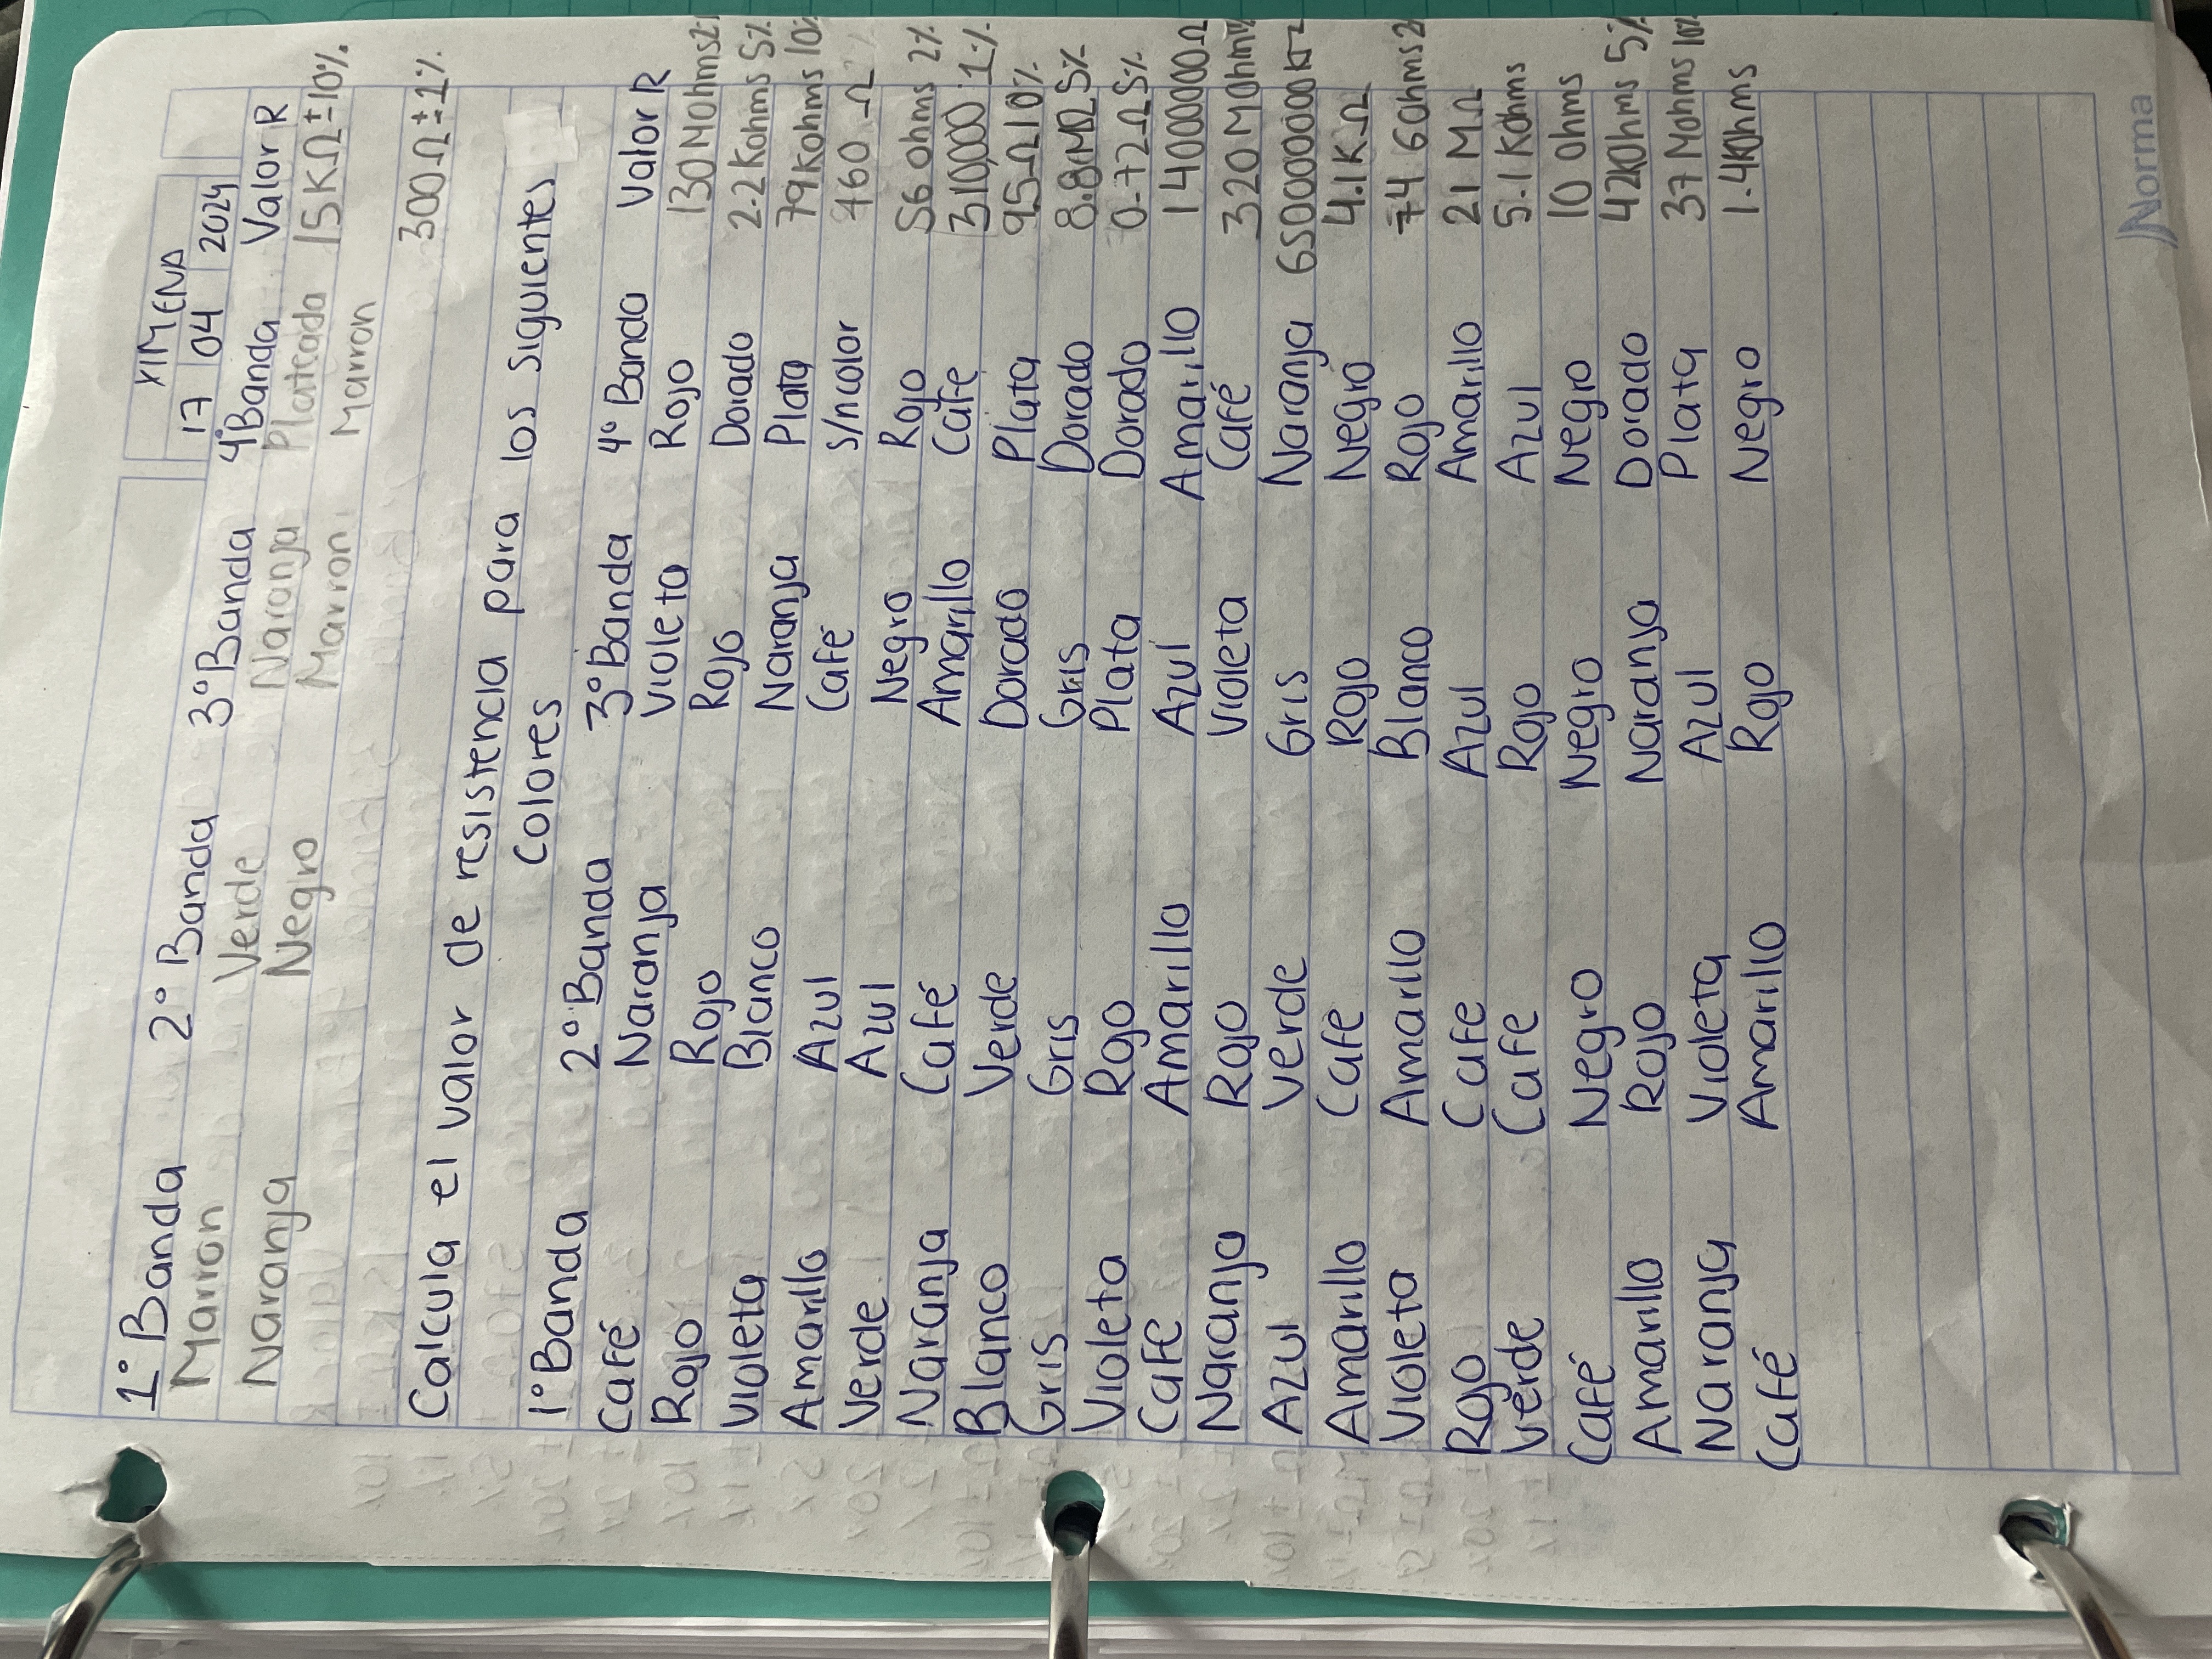 XIMENA
17 04 2024
1° Banda 2° Banda 3° Banda 4° Banda Valor R
Marron Verde Naranja Plateada 15 KΩ ± 10%
Naranja Negro Marron Marron
300Ω ± 1%
Calcula el valor de resistencia para los siguientes
Colores
1° Banda 2° Banda 3° Banda 4° Banda Valor R
Café Naranja Violeta Rojo 130 MOhms
Rojo Rojo Rojo Dorado 2.2 Kohms 5%
Violeta Blanco Naranja Plata 79 Kohms 10%
Amarillo Azul Café s/ncolor 460 Ω
Verde Azul Negro Rojo 56 ohms 2%
Naranja Café Amarillo Café 310,000 1%
Blanco Verde Dorado Plata 9.5Ω 10%
Gris Gris Gris Dorado 8.8 MΩ 5%
Violeta Rojo Plata Dorado 0.72Ω 5%
Café Amarillo Azul Amarillo 14000000Ω
Naranja Rojo Violeta Café 320 MOhm
Azul Verde Gris Naranja
Amarillo Café Rojo Negro 4.1 KΩ
Violeta Amarillo Blanco Rojo 74 GOhms
Rojo Cafe Azul Amarillo 21 MΩ
Verde Cafe Rojo Azul 5.1 Kohms
Café Negro Negro Negro 10 Ohms
Amarillo Rojo Naranja Dorado 42KOhms 5%
Naranja Violeta Azul Plata 37 Mohms 10%
Café Amarillo Rojo Negro 1.4KOhms
Norma